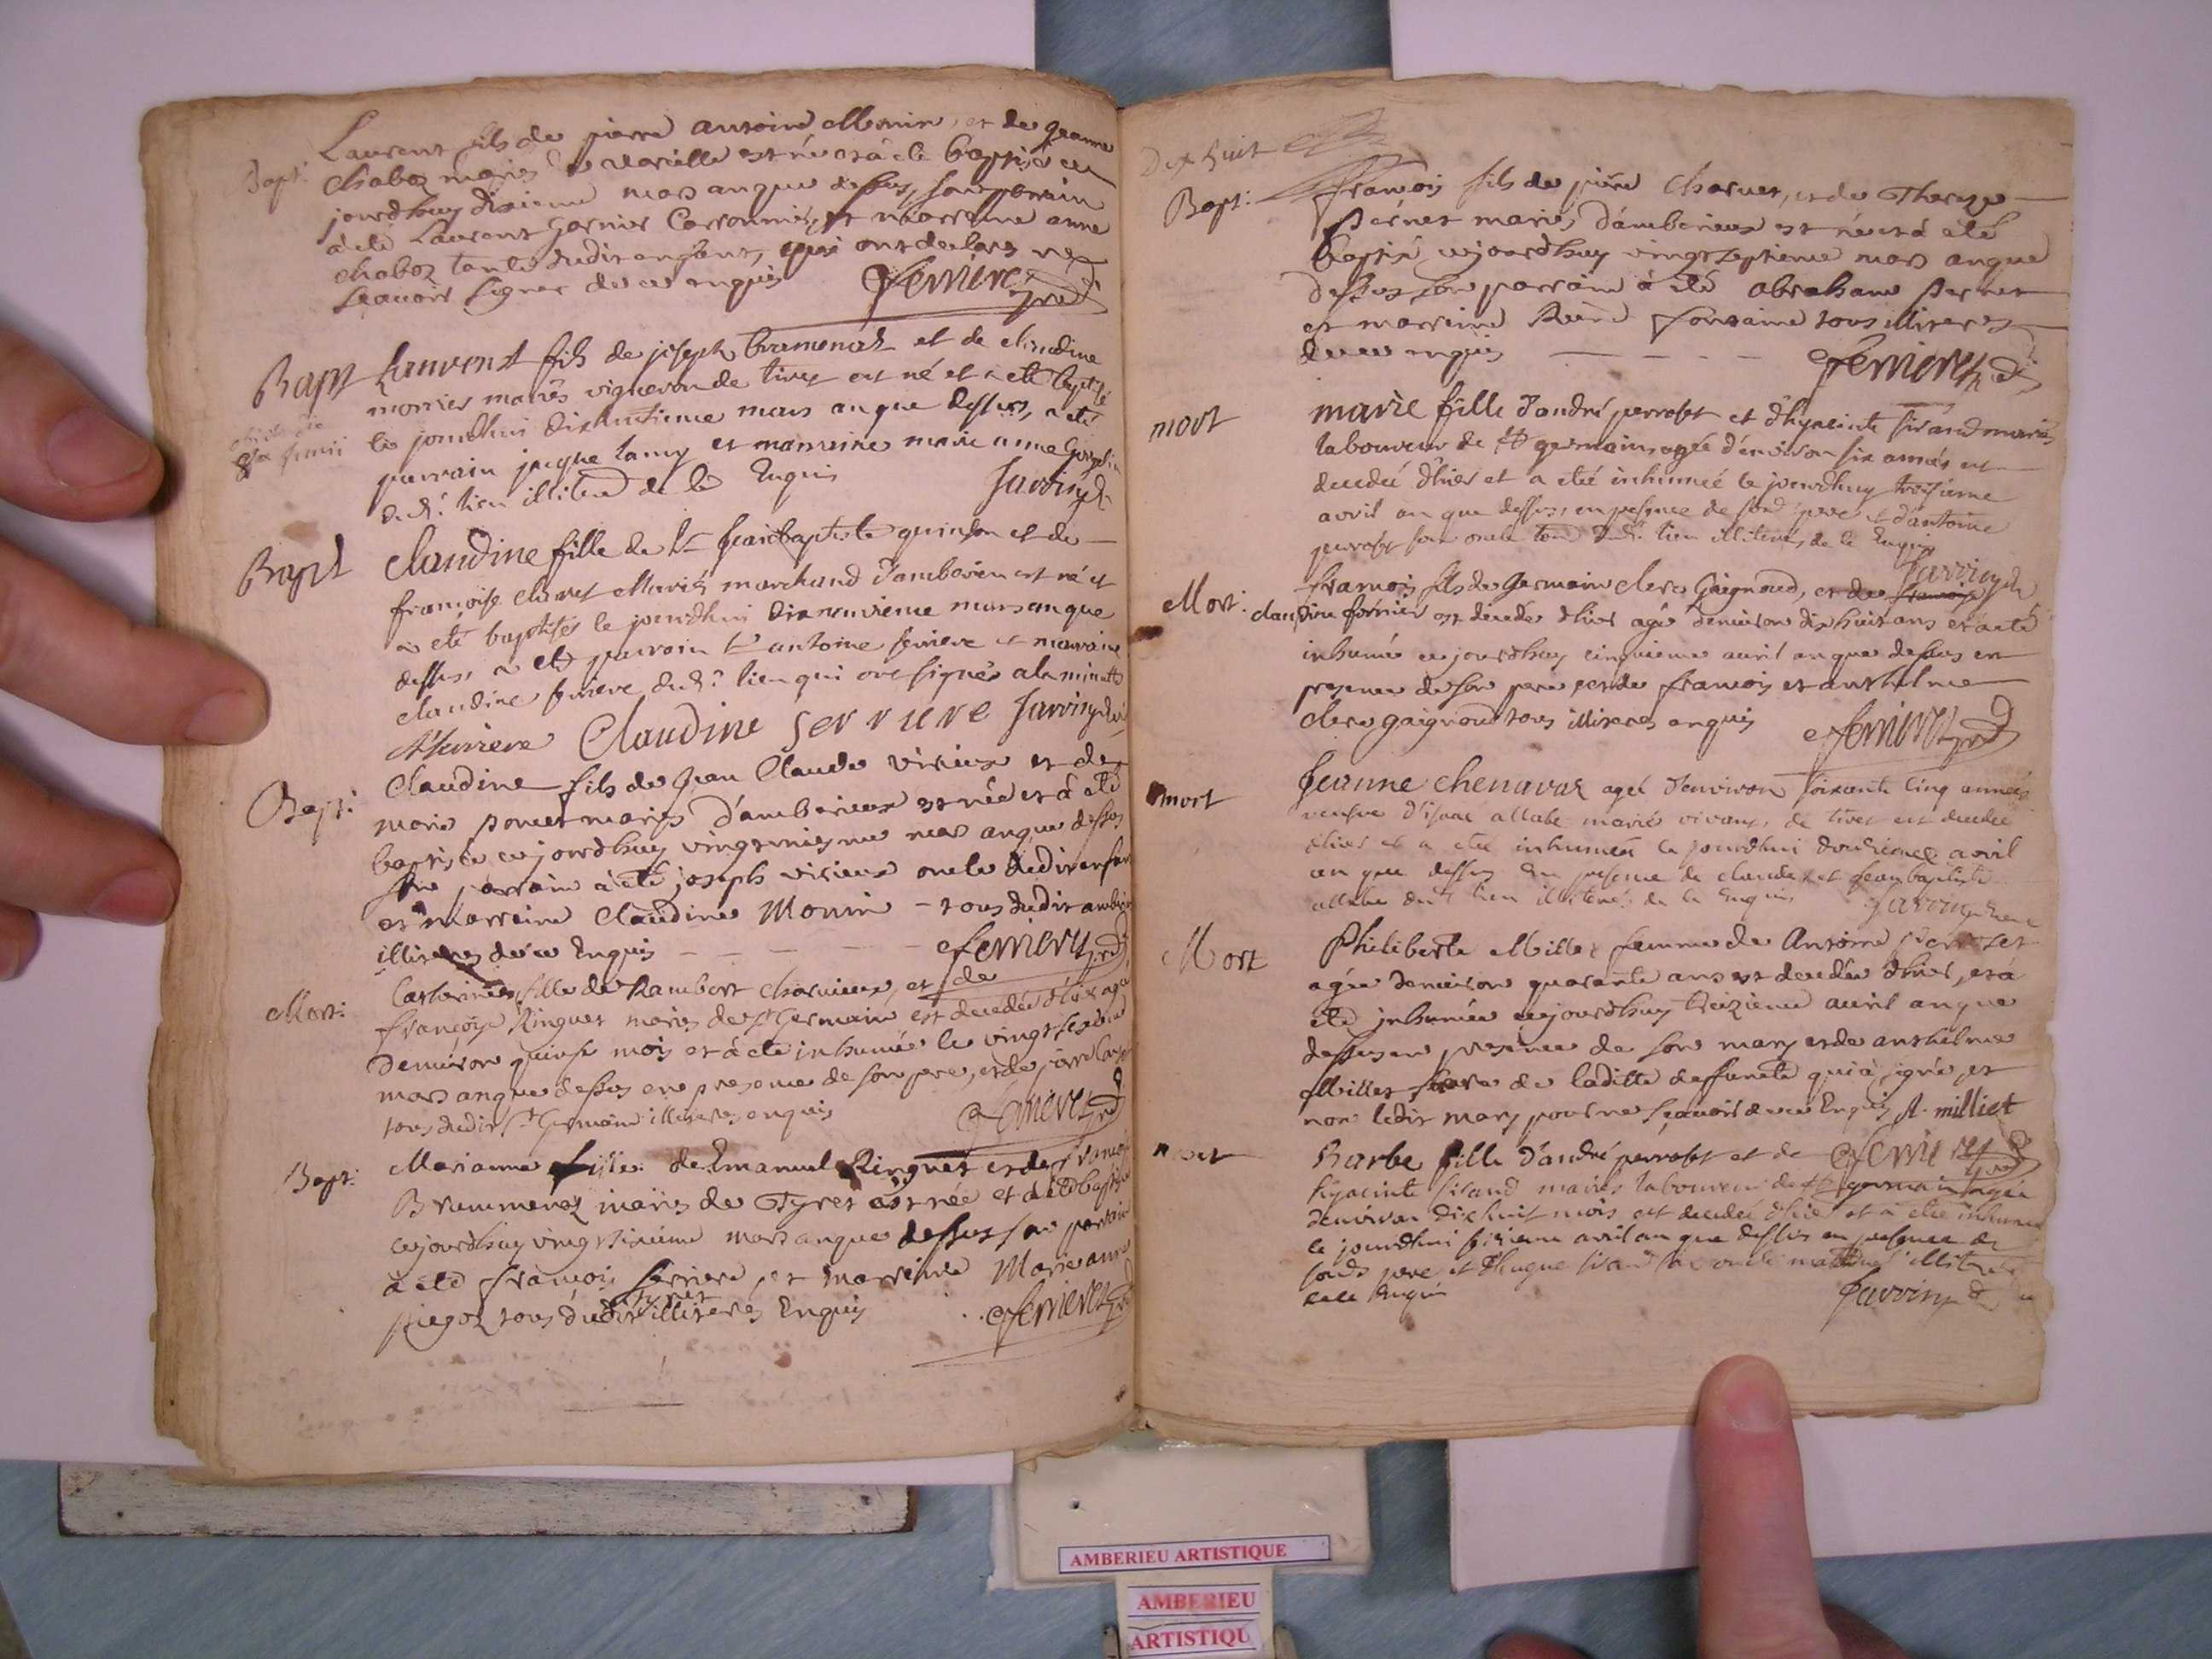 Bapt:
Laurent fils de pierre antoine Monin, et de Jeanne
Chaboz mariés de vareille est né et à eté baptisé ce
jourdhuy dixieme mars an que dessus, son parrain
à eté Laurent Garnier et marreine anne
chaboz tante dudit enfant, qui ont declaré ne
sçauoir signer de ce enquis ferrieres
Bapt
Laurent fils de joseph bramerel et de claudine
monier mariés vigneron de tiret est né et a eté baptisé
le jourdhui dixhuitieme mars an que dessus, a eté
parrain jacque lamy et marreine marie anne
dud.t lieu illiteré de ce Enquis
Bapt
Claudine fille de Sr Jean baptiste quinson et de
françoise charvet Mariés marchand d'amberieu est né et
a eté baptisée le jourdhui dix neuvieme mars an que
dessus, a eté parrain Sr antoine ferriere et marraine
claudine ferriere dud.t lieu qui ont signés a la minutte
A ferriere Claudine ferriere
Bapt:
Claudine fils de Jean Claude vicieux et de
marie poncet mariés d'amberieux est née et à eté
baptisée cejourdhuy mars an que dessus
son parrain à eté joseph vicieux oncle dudit enfant
et marreine Claudine Monin – tous dudit
illiterés de ce Enquis — — — ferrieres
Mort:
Catherine fille de Rambert charvieux, et de
françoise Ringuet mariés de St Germain est decedée d'hier agé
denuiron quinse mois et à eté inhumée le
mars an que dessus en presence de son pere, et de pierre
tous dudit St Germain illiterés enquis ferrieres
Bapt:
Marianne fille de Emanuel Ringuet et de françoise
Brammerel mariés de Tyret est née et à eté baptisée
cejourdhuy vingt sixieme mars an que dessus son parrain
à eté françois ferriere, et marreine Marie anne
tous dudit Tyret illiterés Enquis ferrieres
Dix huit
Bapt:
François fils de pierre charvet, et de Therese
Pernet mariés, d'amberieux est né et à eté
baptisé cejourdhuy vingt septieme mars an que
dessus, son parrain à eté abraham Pernet
et marreine fontaine tous illiterés
de ce enquis — — — — ferrieres
mort
marie fille d'andré perrost et d'hyacinte sirand mariés
laboureur de St germain agée d'environ six années est
decedée d'hier et a eté inhumeé le jourdhuy troisieme
avril an que dessus, en presence de sond. pere et d'antoine
perrost son oncle dud.t lieu illiterés, de ce Enquis
Mort:
François fils de Germain clerc Gaignoud, et de
claudine fornier est decedé d'hier agé denuiron dix huit ans et a eté
inhumé cejourdhuy cinquieme auril an que dessus en
presence de son pere et de françois et anthelme
clerc gaignoud tous illiterés enquis ferrieres
mort
Jeanne Chenavaz ageé d'environ soixante cinq années
veufve d'isaac allabe mariés vivant, de tiret est decedée
d'hier et a eté inhumeé le jourdhui avril
an que dessus En presence de claude et jean baptiste
allabe dud.t lieu illiterés de ce Enquis
Mort
Philiberte Millet femme de Antoine Perroset
agée denuiron quarante ans est decedée d'hier, et à
eté inhumée cejourdhuy treizieme auril an que
dessus en presence de son mary et de anthelme
Milliet frere de laditte deffuncte qui à signé, et
non ledit mary pour ne sçauoir de ce Enquis A. milliet
mort
Barbe fille d'andré perrost et de ferrieres
hyacinte sirand mariés laboureur de St germain agée
d'environ dix huit mois est decedée d'hier et a eté inhumeé
le jourdhui avril an que dessus en presence de
sond. pere et d'hugue sirand son oncle maternel illiterés
de ce Enquis
AMBERIEU ARTISTIQUE
AMBERIEU
ARTISTIQU